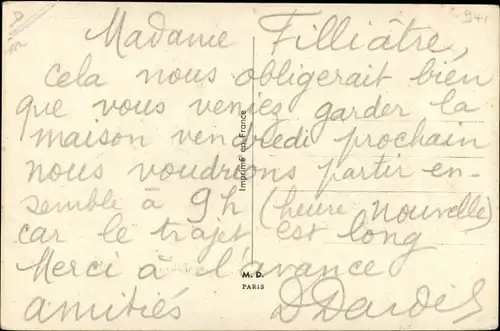 941
Madame Filliâtre,
cela nous obligerait bien
que vous veniez garder la
maison vendredi prochain
nous voudrions partir en-
semble à 9h (heure nouvelle)
car le trajet est long
Merci à l'avance
amitiés
Imprimé en France
M. D.
PARIS